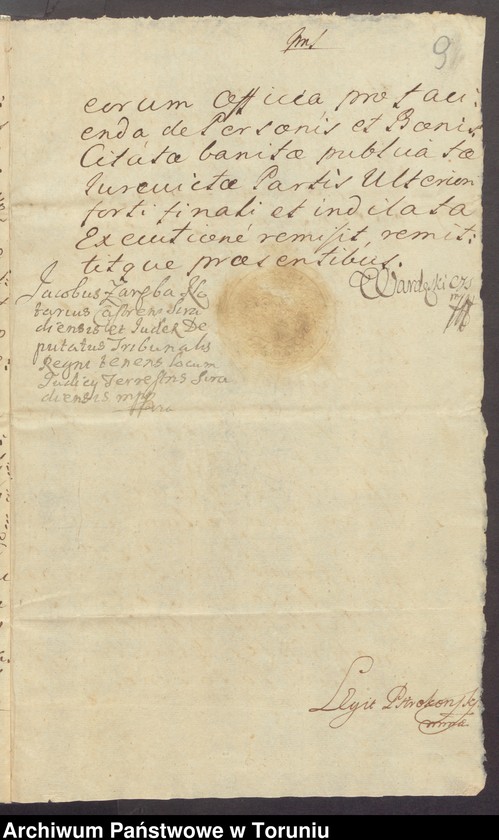 9
eorum Officia pro faci:
enda de Personis et Bonis
Citatæ banitæ publicatæ
Iurevictæ Partis Ulteriori
forti finali et indilata
Executione remisit remit:
titque præsentibus.
Jacobus Zaręba No
tarius Castren: Sira
diensis et Judex De
putatus Tribunalis
Regni tenens locum
Judicy Terrestris Sira
diensis mpp
Legit Pstrokonski
Archiwum Państwowe w Toruniu